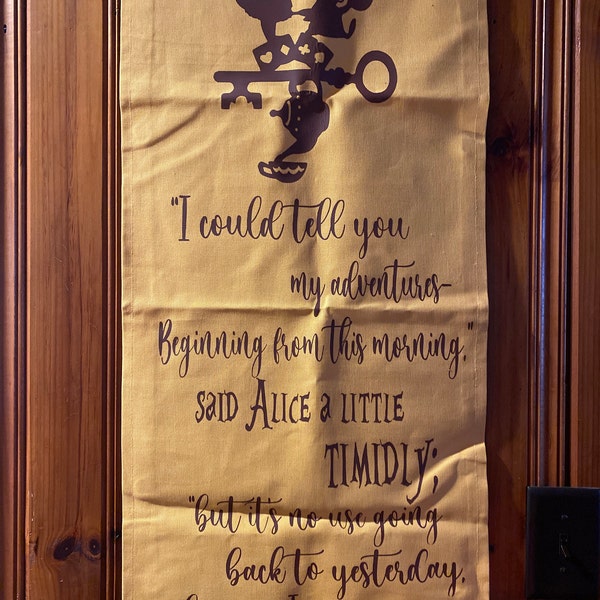 "I could tell you
my adventures–
Beginning from this morning,"
said Alice a little
TIMIDLY;
"but it's no use going
back to yesterday,